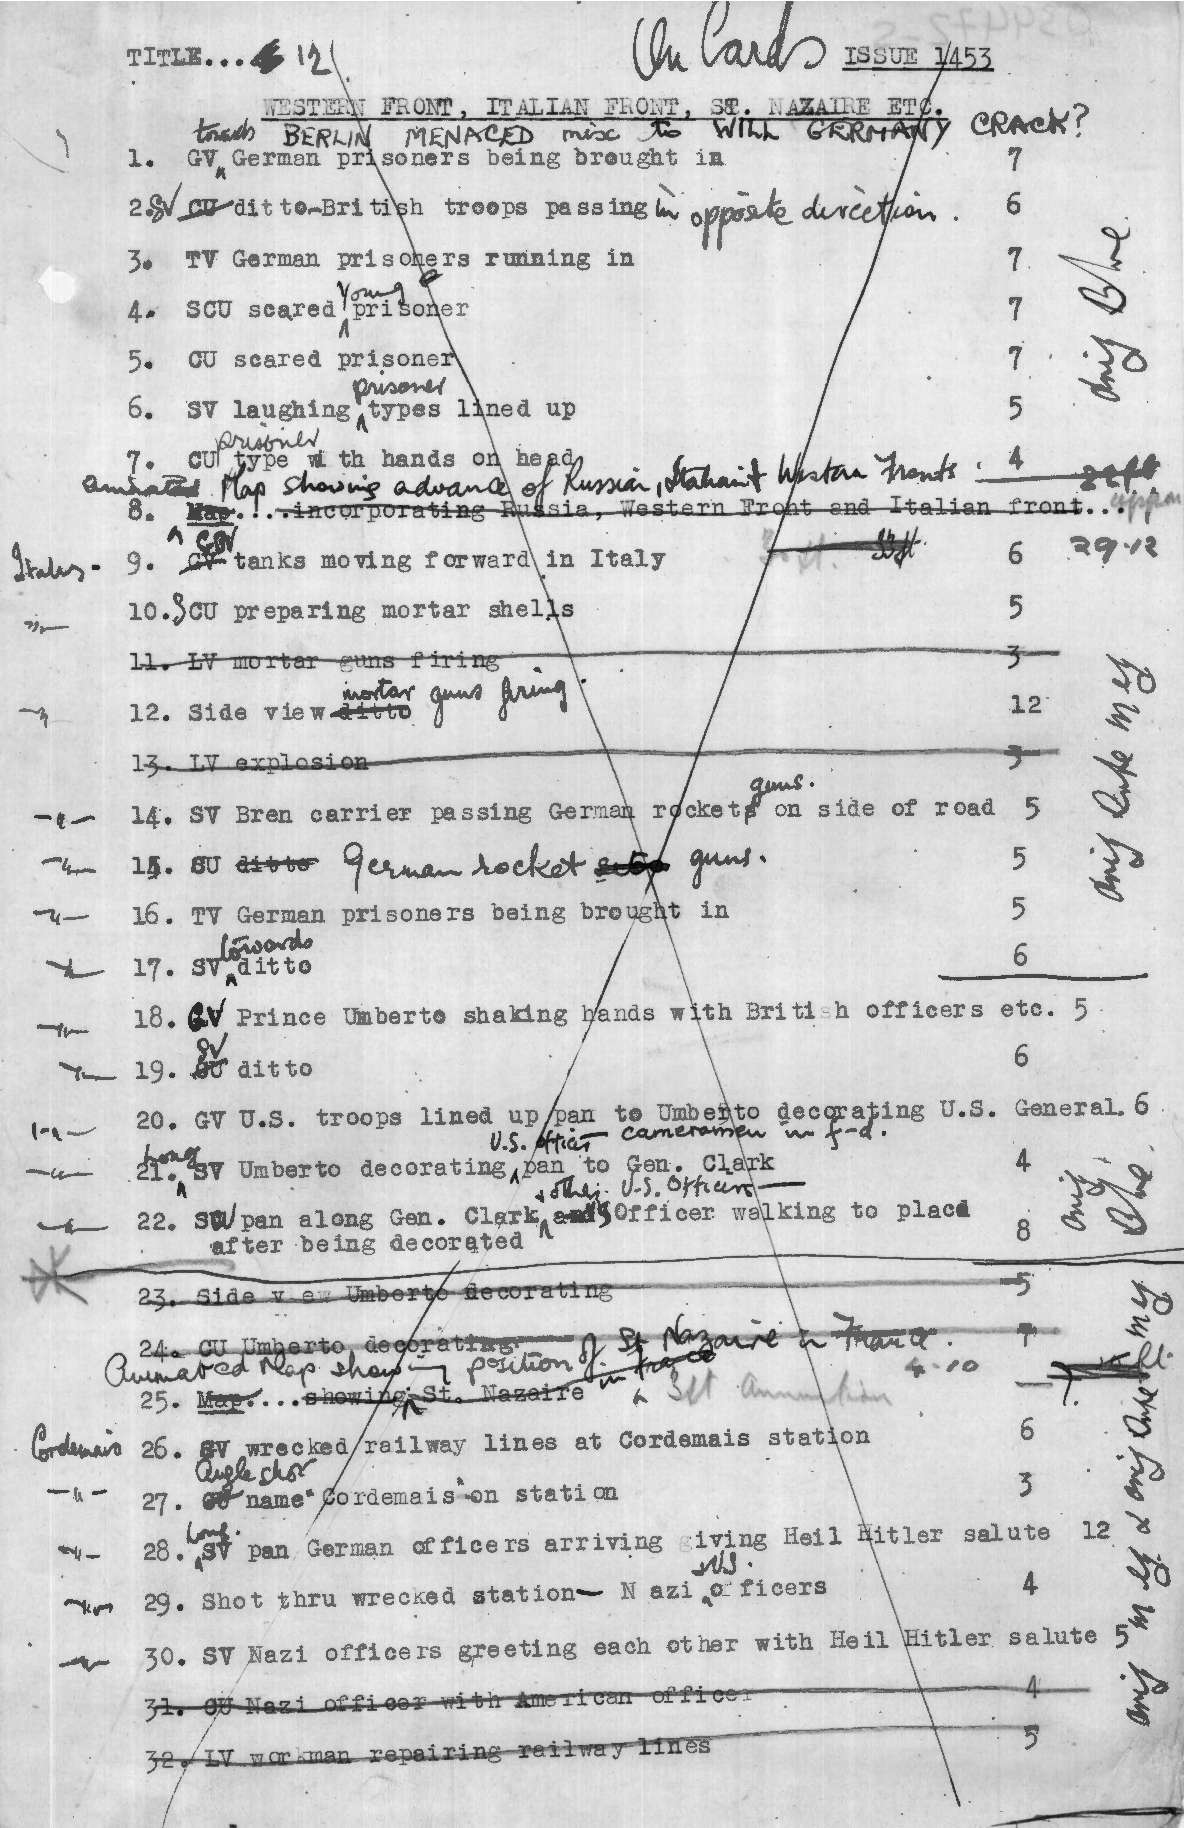 On Cards
TITLE... 12 ISSUE 1453
WESTERN FRONT, ITALIAN FRONT, ST. NAZAIRE ETC.
BERLIN MENACED misc to WILL GERMANY CRACK?
towards
1. GV German prisoners being brought in 7
2. SV CU ditto-British troops passing in opposite direction. 6
3. TV German prisoners running in 7
young
4. SCU scared prisoner 7
5. CU scared prisoner 7
prisoner
6. SV laughing types lined up 5
prisoner
7. CU type with hands on head 4
animated Map showing advance of Russian, Italian & Western Fronts.
8. Map....incorporating Russia, Western Front and Italian front...
33ft. 29.12
Italy - 9. GV tanks moving forward in Italy 6
-"- 10. SCU preparing mortar shells 5
11. LV mortar guns firing 3
mortar guns firing.
-"- 12. Side view ditto 12
13. LV explosion 3
guns.
-"- 14. SV Bren carrier passing German rockets on side of road 5
-"- 15. CU ditto German rocket guns. 5
-"- 16. TV German prisoners being brought in 5
towards
-"- 17. SV ditto 6
-"- 18. GV Prince Umberto shaking hands with British officers etc. 5
SV
-"- 19. CU ditto 6
-"- 20. GV U.S. troops lined up pan to Umberto decorating U.S. General. 6
cameramen in f-d.
Long U.S. officer
-"- 21. SV Umberto decorating pan to Gen. Clark 4
& other U.S. Officers
-"- 22. SV pan along Gen. Clark and Officer walking to place
after being decorated 8
23. Side view Umberto decorating 5
24. CU Umberto decorating 7
Animated Map showing position of St Nazaire in France.
in France 4.10
25. Map....showing St. Nazaire 3ft
Cordemais 26. SV wrecked railway lines at Cordemais station 6
Angle shot
-"- 27. CU name "Cordemais" on station 3
Long.
-"- 28. SV pan German officers arriving giving Heil Hitler salute 12
& U.S.
-"- 29. Shot thru wrecked station- Nazi officers 4
-"- 30. SV Nazi officers greeting each other with Heil Hitler salute 5
31. CU Nazi officer with American officer 4
32. LV workman repairing railway lines 5